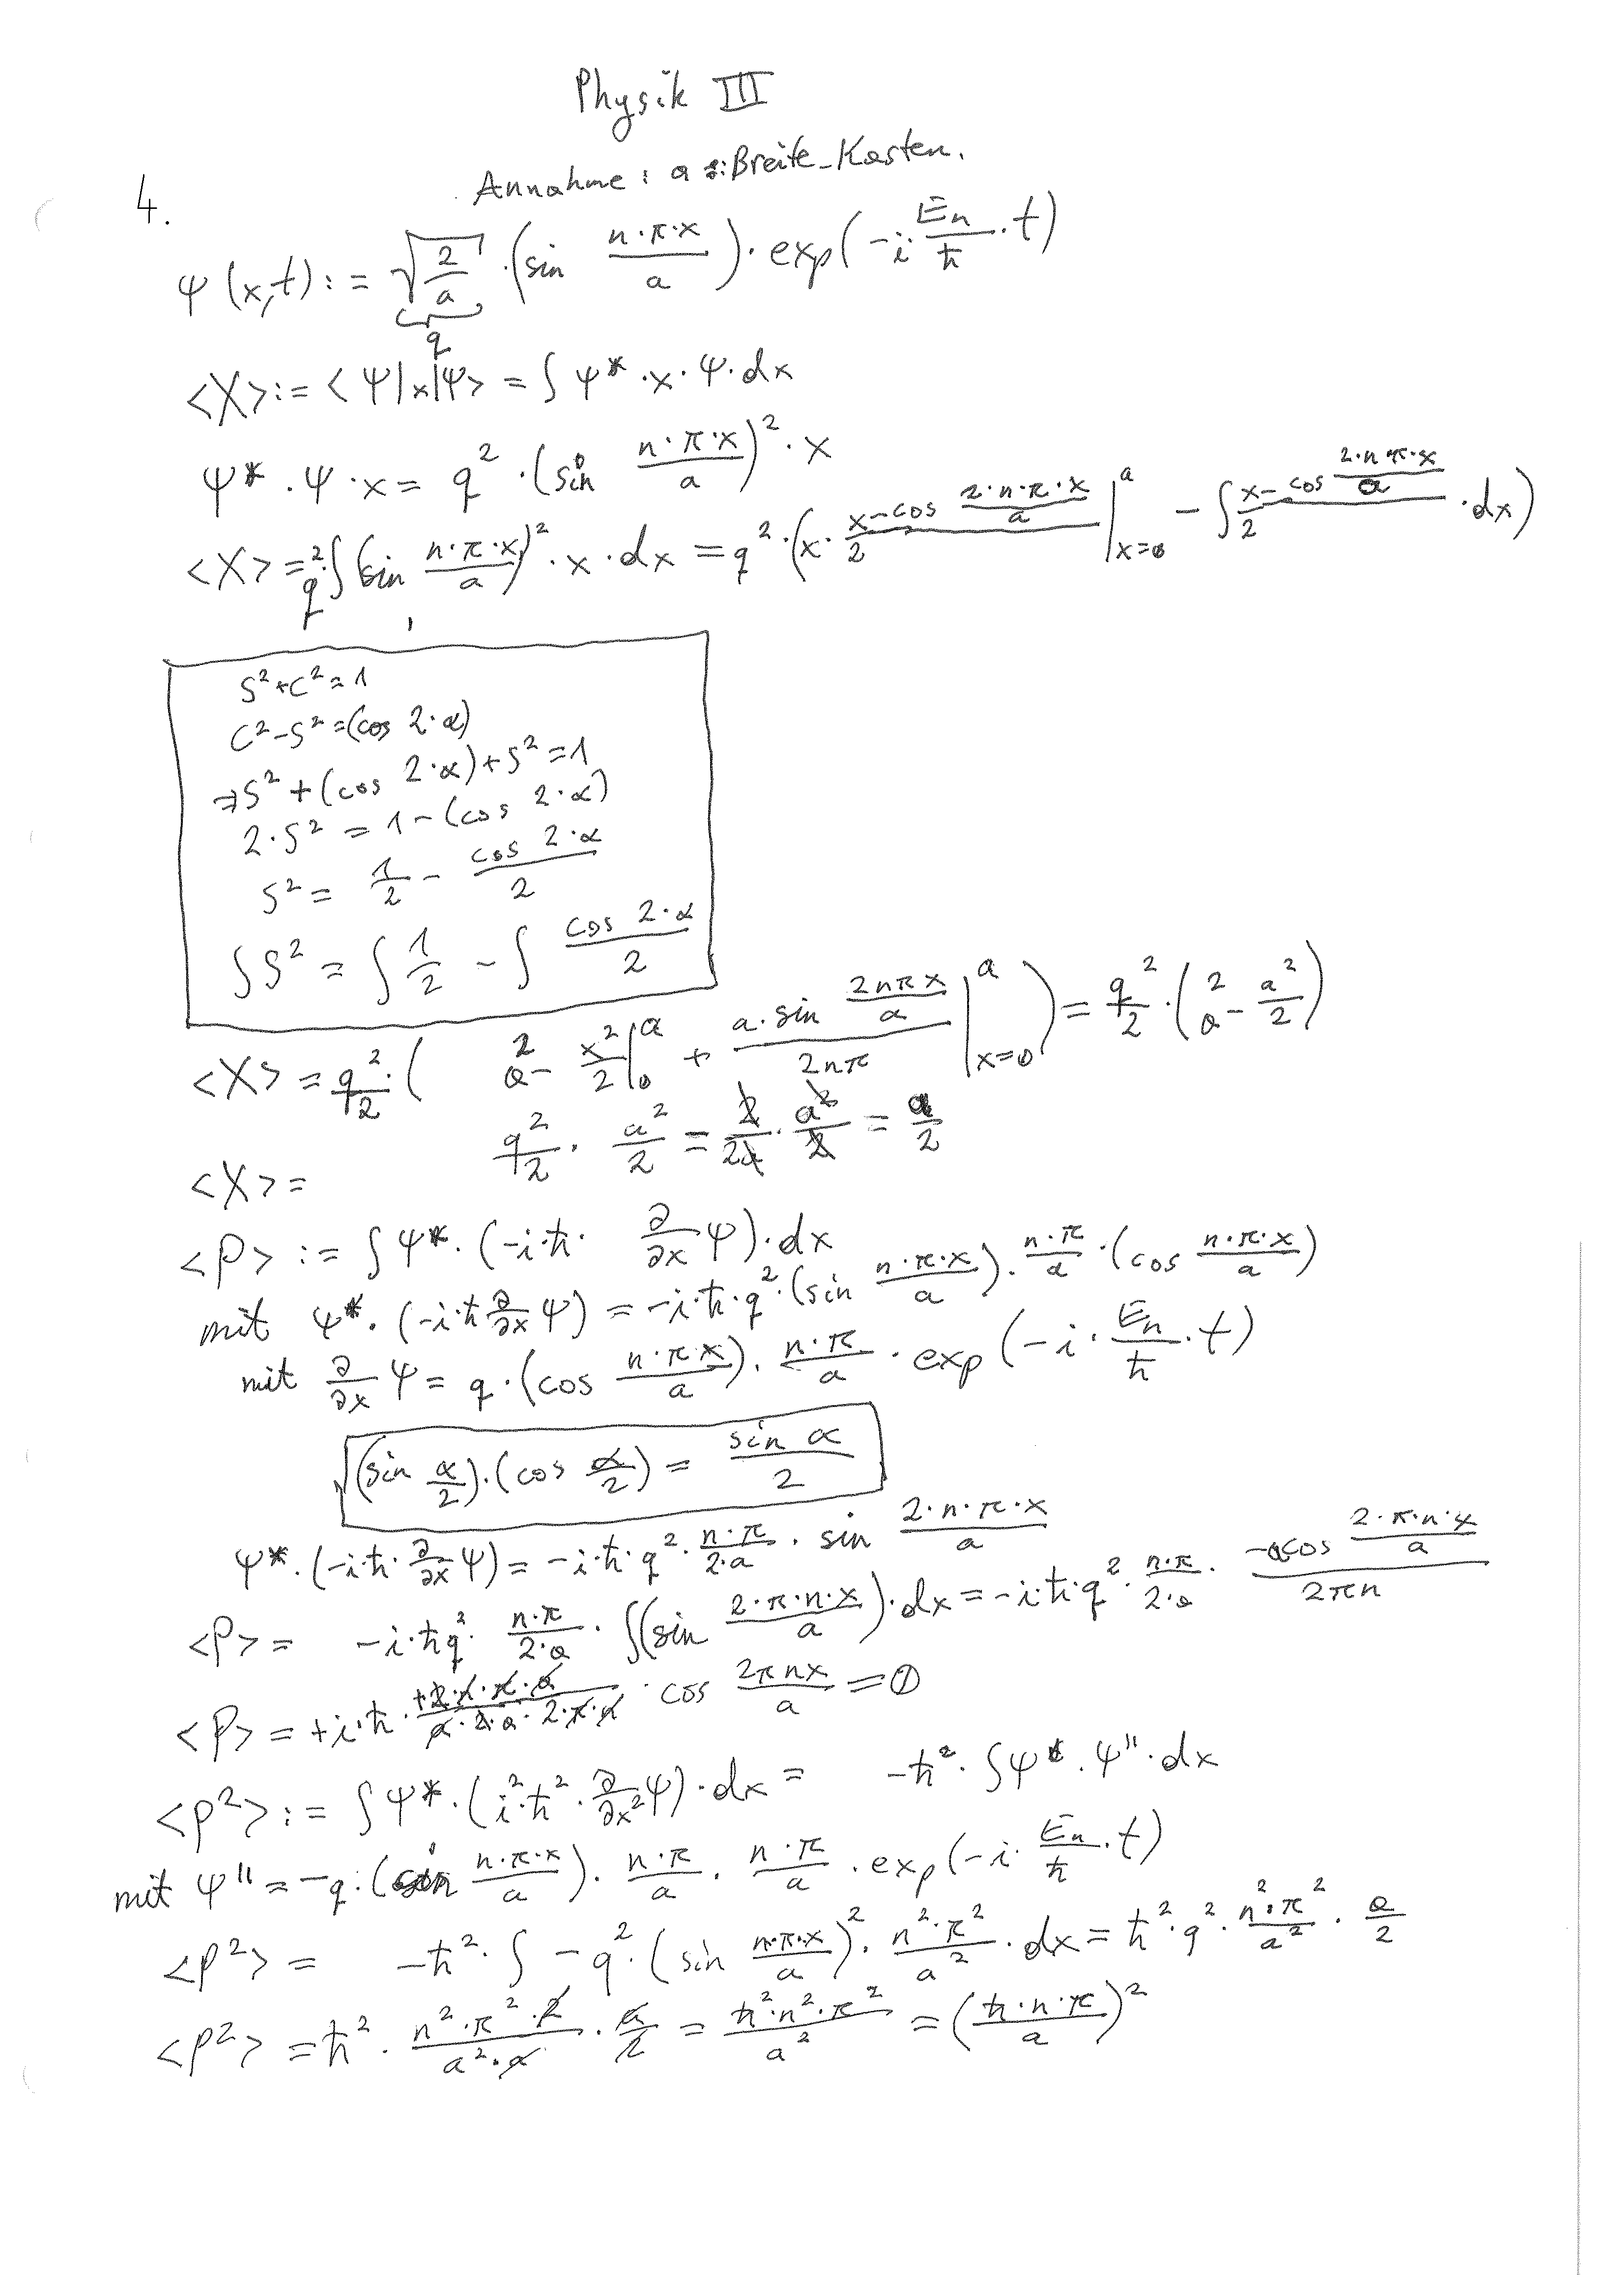 Physik III
Annahme: a := Breite_Kasten.
4.
ψ(x,t) := √(2/a) · (sin n·π·x/a) · exp(-i·Eₙ/ħ·t)
q
<X> := <ψ|x|ψ> = ∫ψ* · x · ψ · dx
ψ* · ψ · x = q² · (sin n·π·x/a)² · x
<X> = q² · ∫(sin n·π·x/a)² · x · dx = q² · (x · (x - cos 2·n·π·x/a)/2 |ₓ₌₀ᵃ - ∫(x - cos 2·n·π·x/a)/2 · dx)
S² + C² = 1
C² - S² = (cos 2·α)
⇒ S² + (cos 2·α) + S² = 1
2·S² = 1 - (cos 2·α)
S² = 1/2 - (cos 2·α)/2
∫S² = ∫1/2 - ∫(cos 2·α)/2
<X> = q²/2 · (a² - x²/2 |₀ᵃ + (a·sin 2nπx/a)/2nπ |ₓ₌₀ᵃ) = q²/2 · (a² - a²/2)
<X> = q²/2 · a²/2 = 2/2a · a²/2 = a/2
<P> := ∫ψ* · (-i·ħ· ∂/∂x ψ) · dx
mit ψ* · (-i·ħ ∂/∂x ψ) = -i·ħ·q² · (sin n·π·x/a) · n·π/a · (cos n·π·x/a)
mit ∂/∂x ψ = q · (cos n·π·x/a) · n·π/a · exp(-i·Eₙ/ħ·t)
(sin α/2) · (cos α/2) = (sin α)/2
ψ* · (-i·ħ· ∂/∂x ψ) = -i·ħ·q² · n·π/2·a · sin 2·n·π·x/a
<P> = -i·ħq² · n·π/2·a · ∫(sin 2·π·n·x/a) · dx = -i·ħ·q² · n·π/2·a · (-a cos 2·π·n·x/a)/2πn
<P> = +i·ħ · (+2·n·π·a)/(a·2·a·2·π·n) · cos 2πnx/a = 0
<P²> := ∫ψ* · (i²·ħ² · ∂/∂x² ψ) · dx = -ħ² · ∫ψ* · ψ'' · dx
mit ψ'' = -q · (sin n·π·x/a) · n·π/a · n·π/a · exp(-i·Eₙ/ħ·t)
<P²> = -ħ² · ∫ -q² · (sin n·π·x/a)² · n²·π²/a² · dx = ħ² · q² · n²·π²/a² · a/2
<P²> = ħ² · (n²·π²·2)/(a²·a) · a/2 = ħ²·n²·π²/a² = (ħ·n·π/a)²